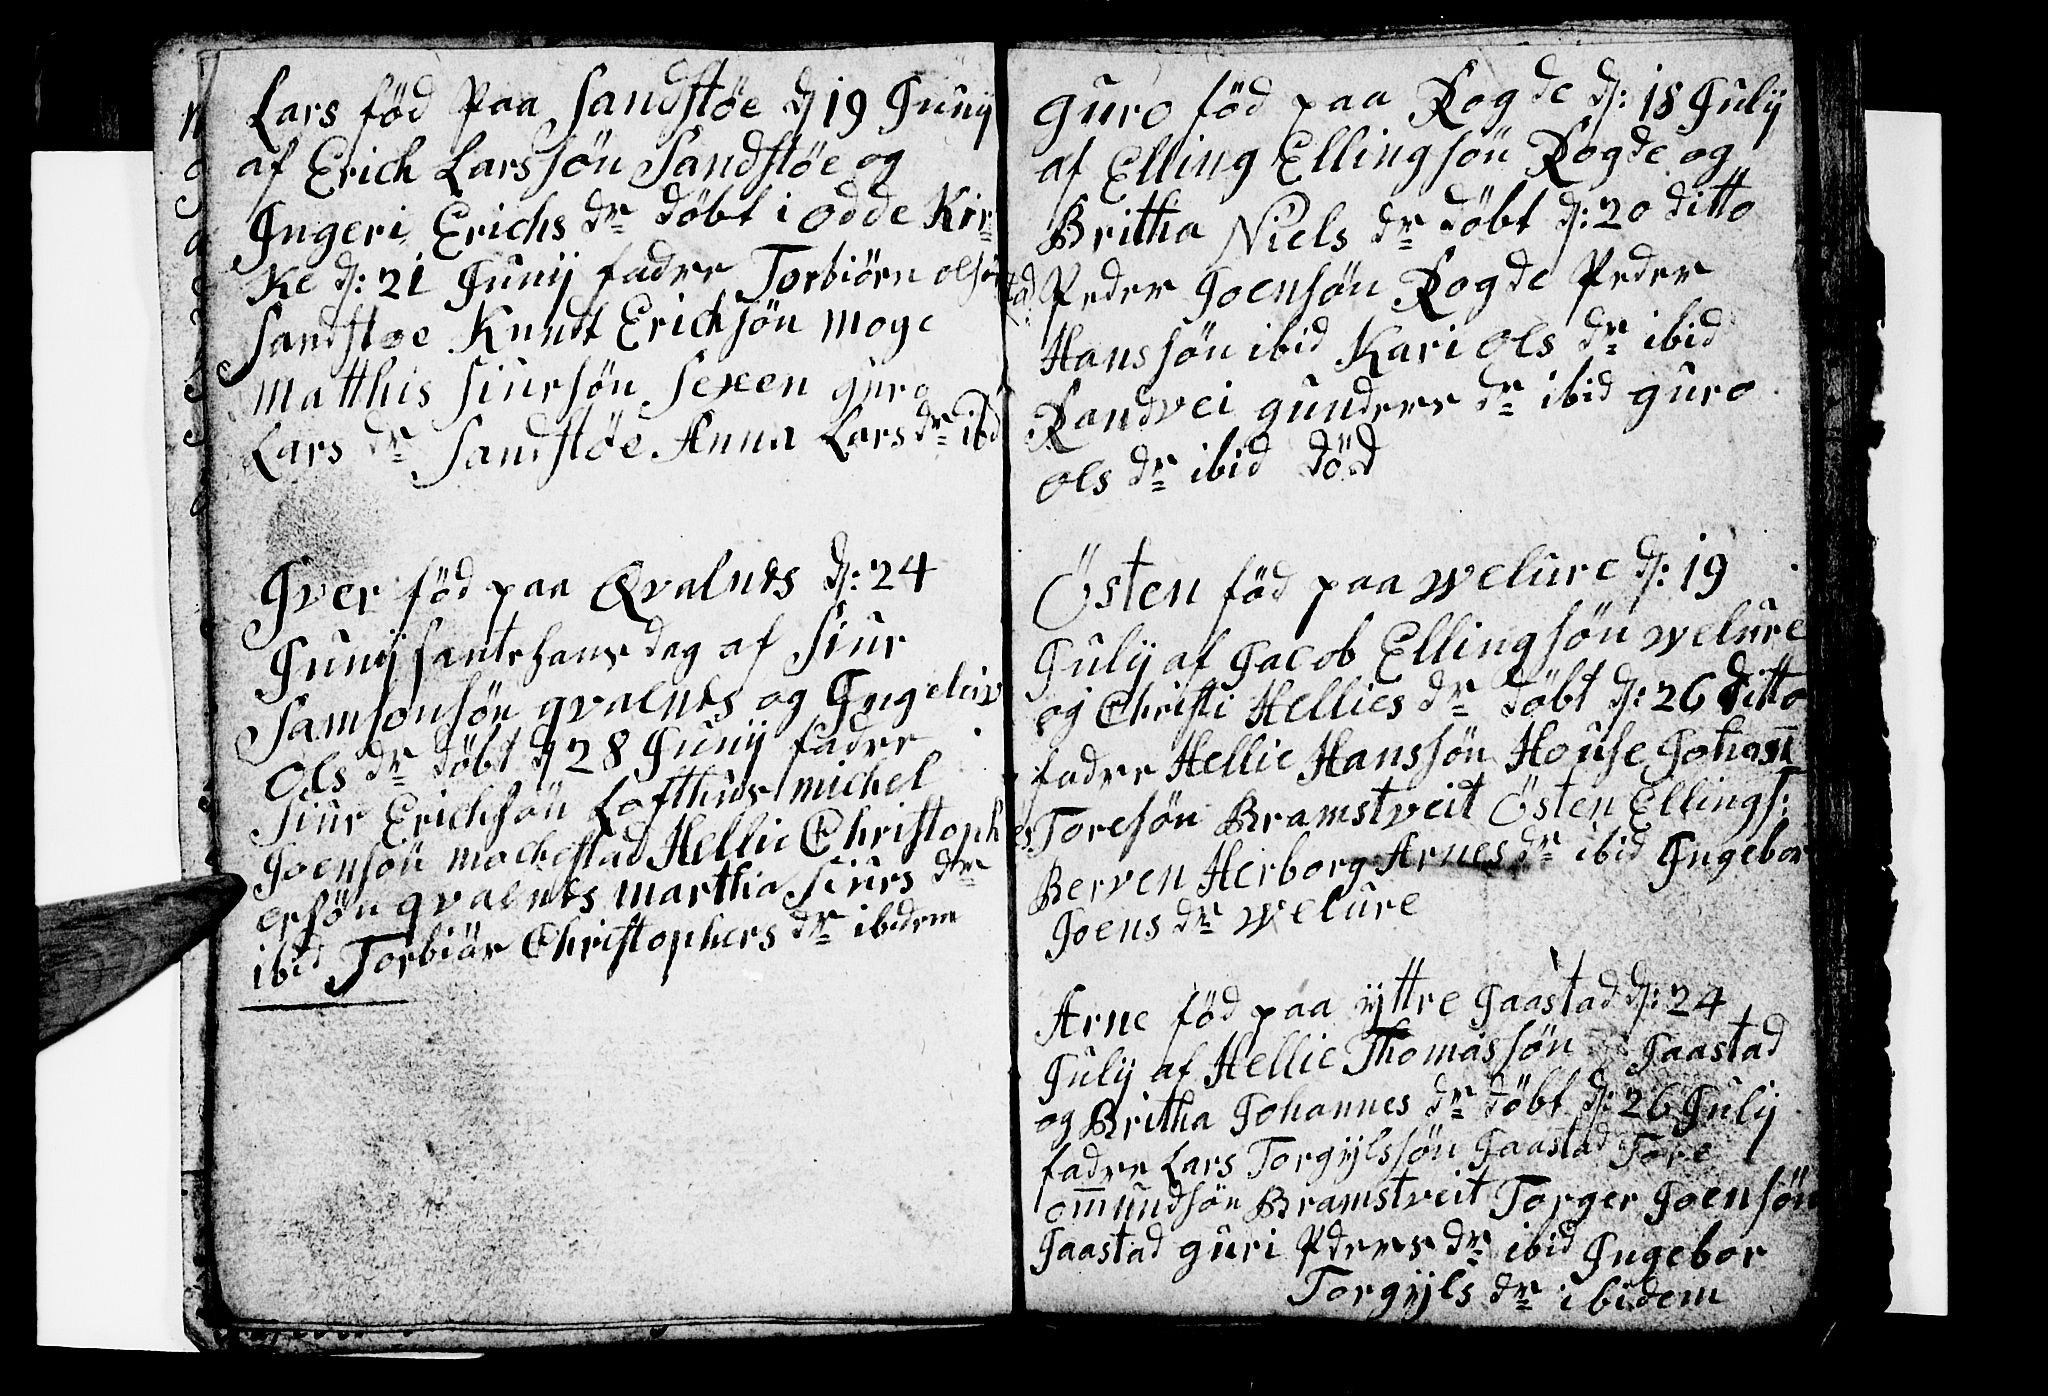 Lars föd Paa Sandstøe d 19 Junij
af Erich Larssön Sandstøe og
Ingeri Erichs dr döbt i odde Kir-
ke d: 21 Junij fadre Torbiörn olsön
Sandstøe Knudt Ericksön moge
Matthis Siursön Sexen guro
Lars dr Sandstøe Anna Lars dr ibd
Iver föd paa Qvalnes d: 24
Junij sante hans dag af Siur
Samsonsön qvalnes og Ingeleiv
Ols dr döbt d 28 Junij fadre
Siur Erichsön Lofthus michel
Joensön mochestad Hellie Christoph
ersön qvalnes martha Siurs dr
ibid Torbiär Christophers dr ibidem
guro föd paa Rogde d: 18 Julij
af Elling Ellingsön Rogde og
Britha Niels dr döbt d: 20 ditto
Peder Joensön Rogde Peder
Hanssön ibid Kari ols dr ibid
Randvei gunders dr ibid guro
ols dr ibid död
Östen föd paa welure d: 19
Julij af Jacob Ellingsön welure
og Christi Hellies dr döbt d: 26 ditto
fadre Hellie Hanssön House Johan
Toresön Bramstveit Östen Ellings:
Berven Herborg Arnes dr ibid Ingebor
Joens dr welure
Arne föd paa ÿttre Jaastad d: 24
Julij af Hellie Thomassön Jaastad
og Britha Johannes dr döbt d: 26 Julij
fadre Lars Torgijlssön Jaastad Tore
omundsön Bramstveit Torger Joensön
Jaastad guri Pders dr ibid Ingebor
Torgijls dr ibidem